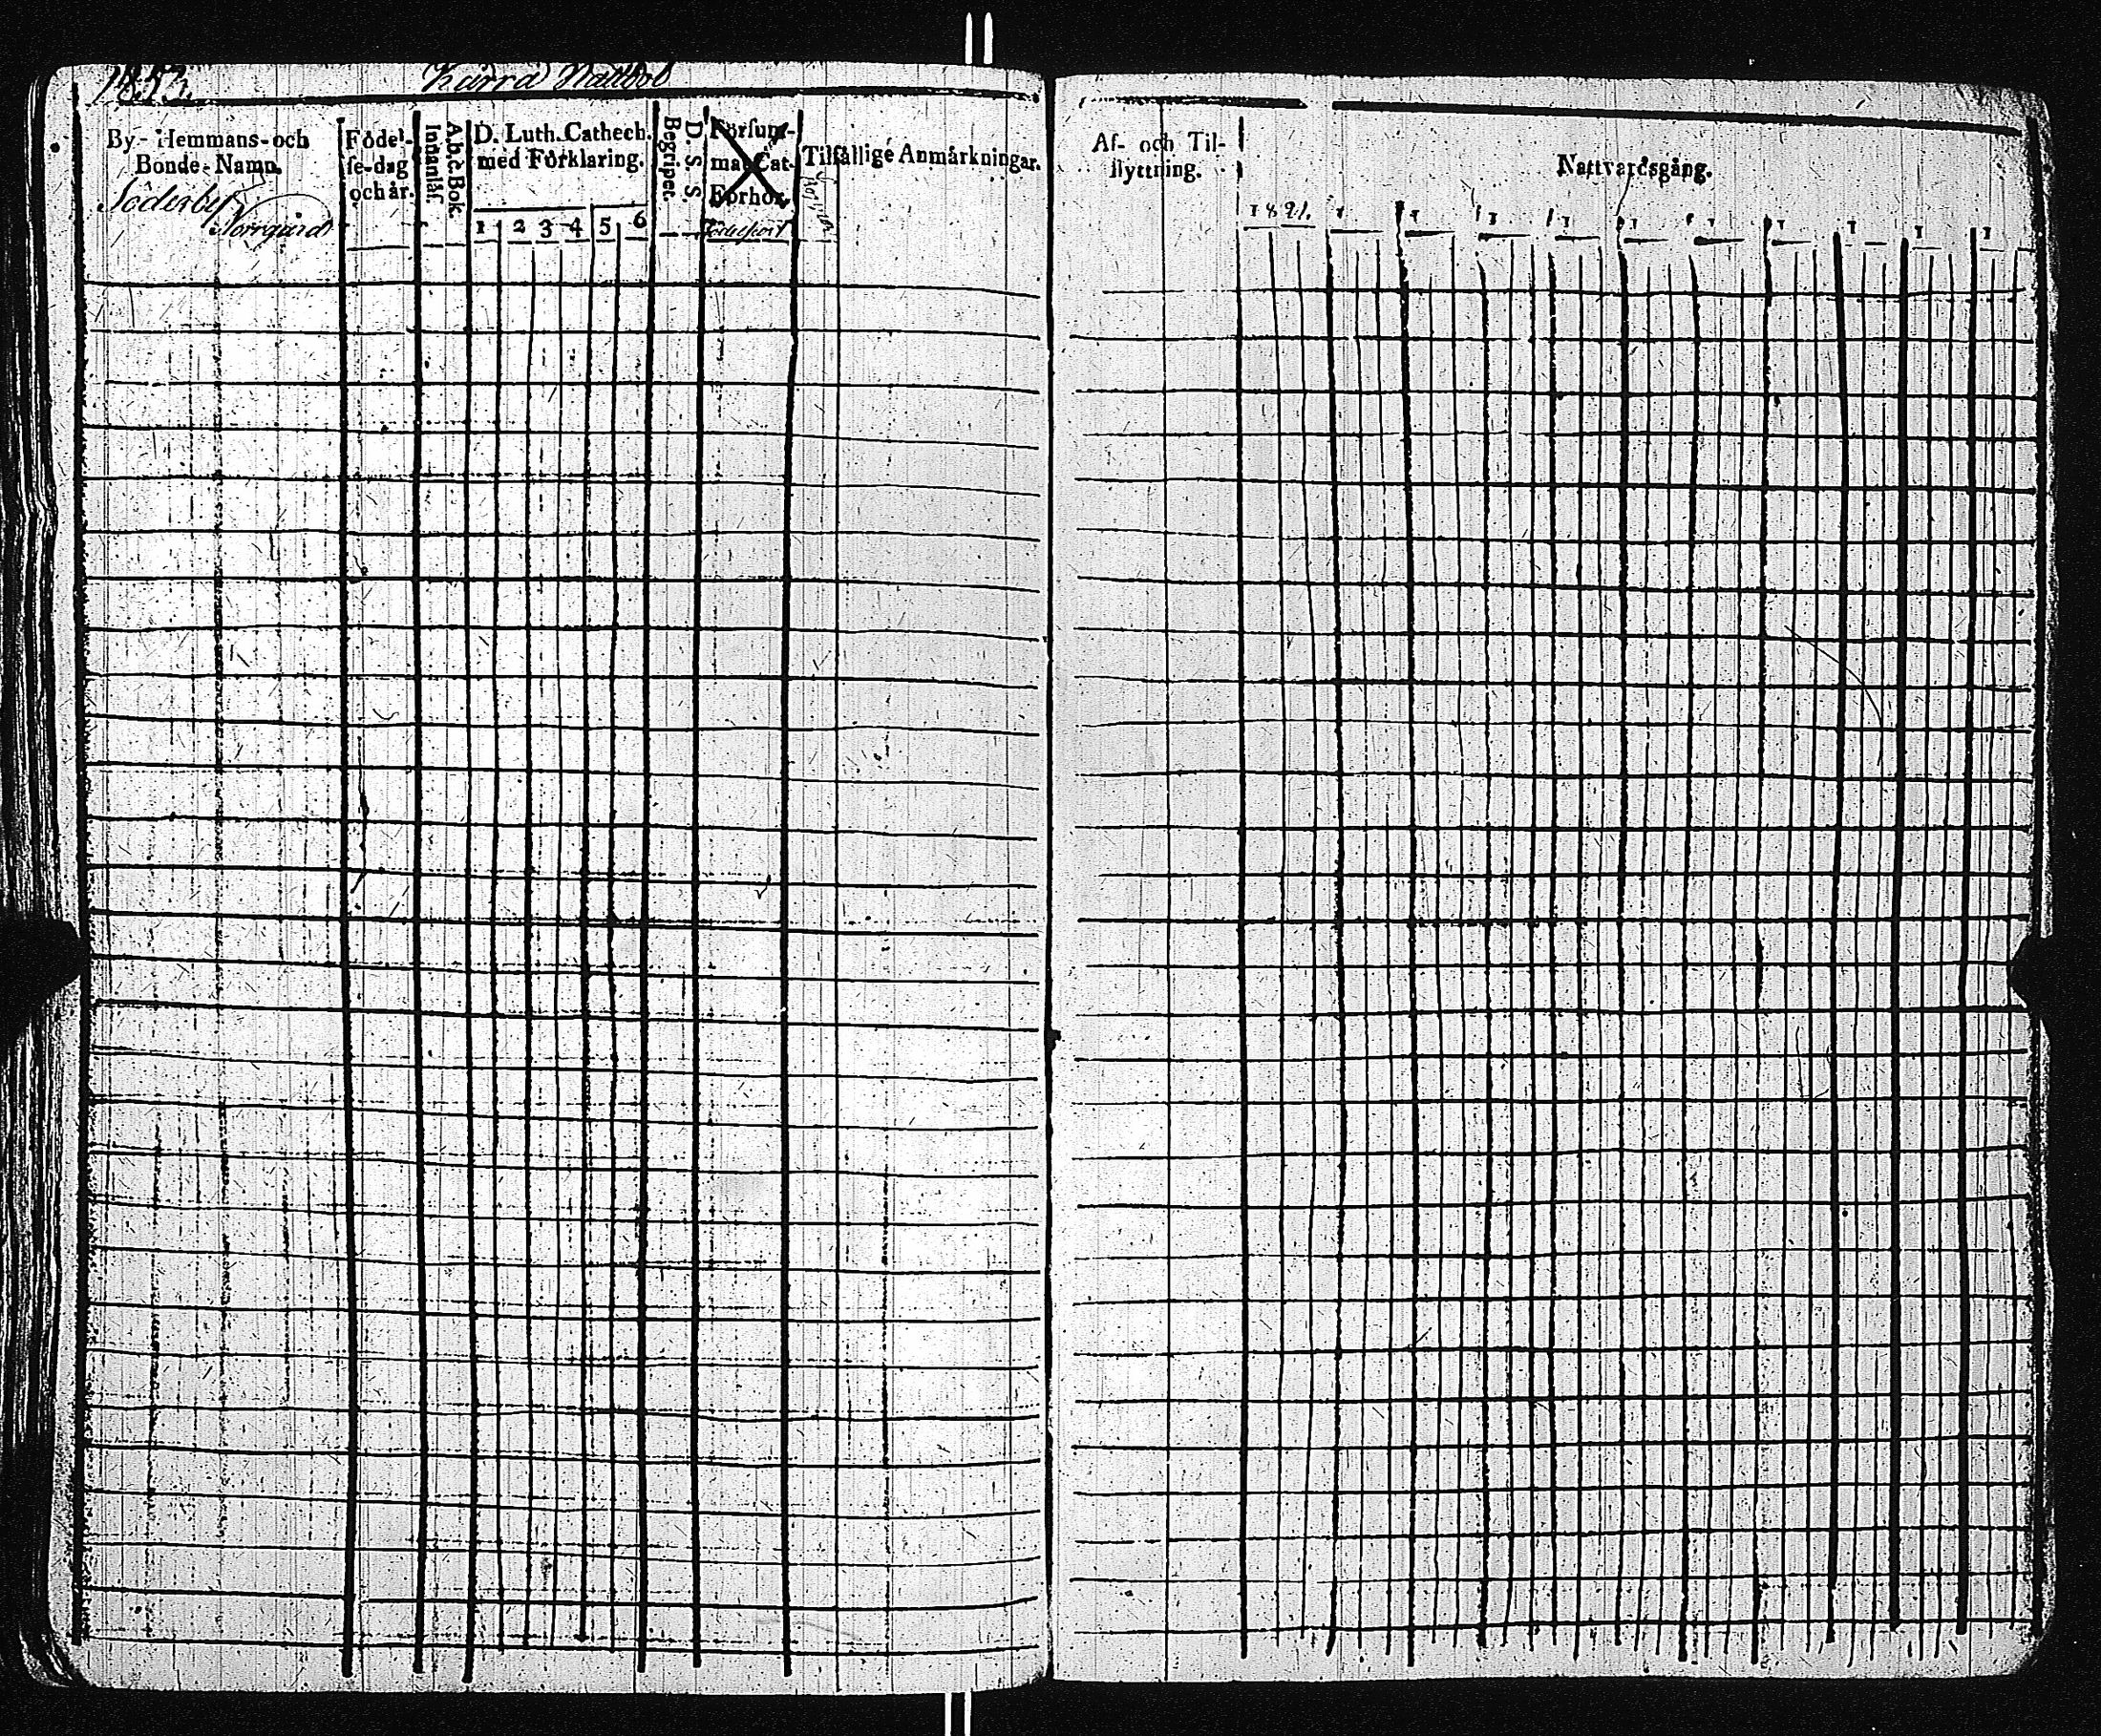 1853.
Kårra Nattbol
By- Hemmans- och
Bonde-Namn.
Söderby
Norrgård
Födel-
se-dag
och år.
A.b.c. Bok.
Innanläs.
D. Luth. Cathech.
med Förklaring.
1 2 3 4 5 6
D. S. S.
Begripet.
Försum-
mat Cat.
Förhör.
Födelseort
Tilfällige Anmärkningar.
Af- och Til-
flyttning.
Nattvardsgång.
1821. 1 1 1 1 1 1 1 1 1 1